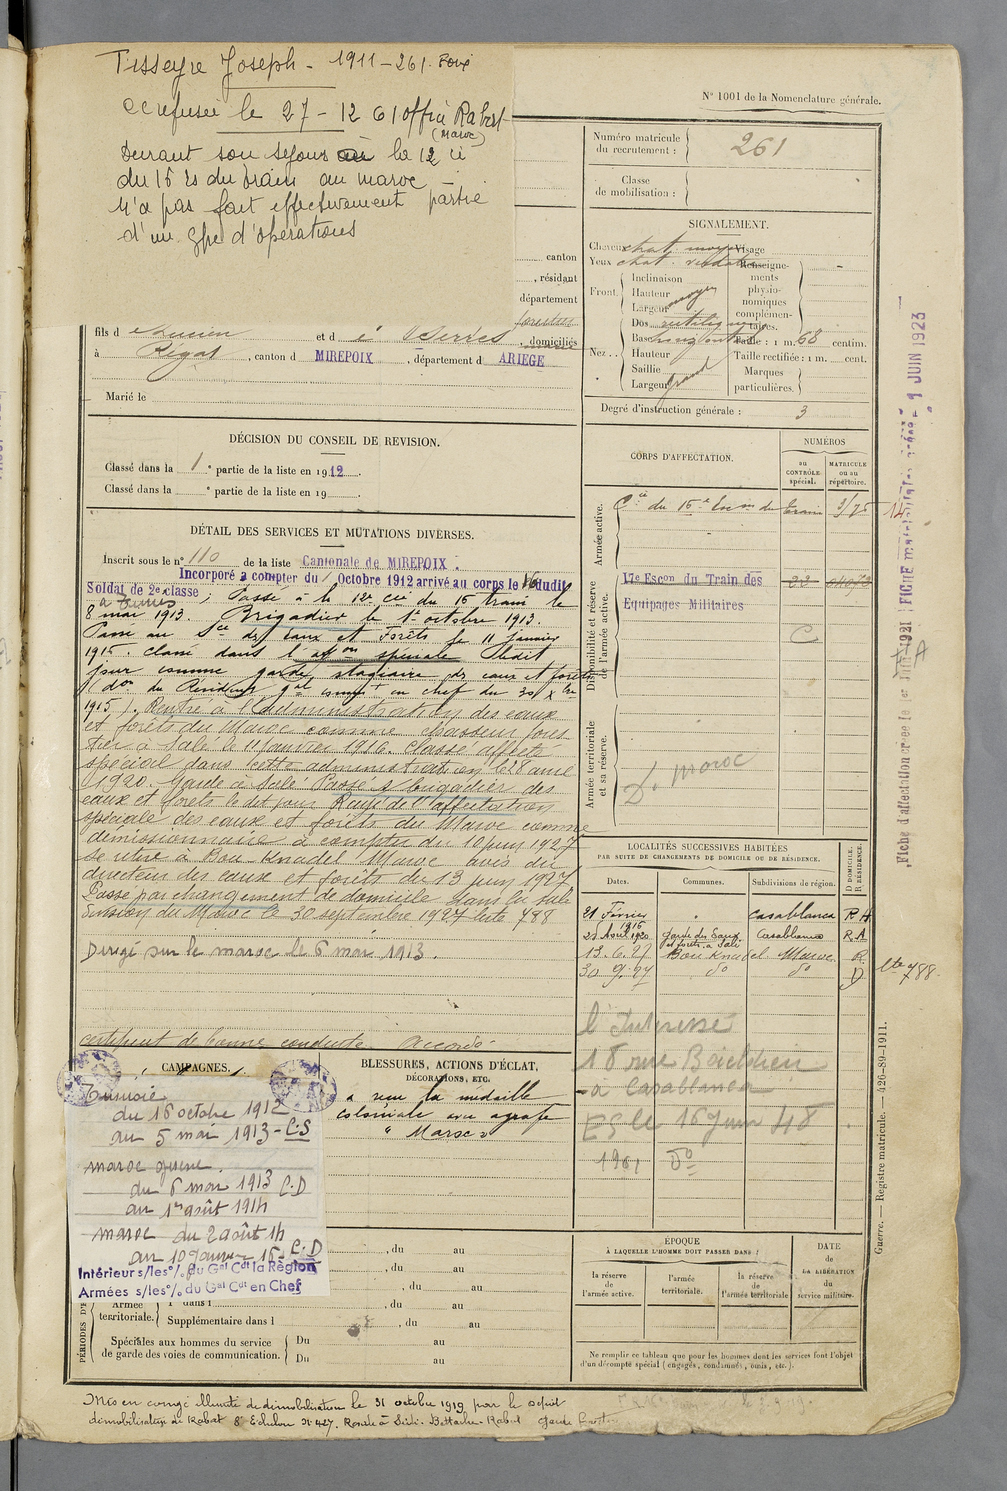 Tisseyre Joseph - 1911 - 261. Foix
cc refusée le 27 - 12 61 office Rabat
(Maroc)
Durant son séjour à la 12 Cie
du 15 Es du train au maroc
N'a pas fait effectivement partie
d'un gpe d'opérations
N° 1001 de la Nomenclature générale.
Numéro matricule
du recrutement : 261
Classe
de mobilisation :
SIGNALEMENT.
Cheveux chat. moyen Visage
Yeux chat. Renseigne-
ments
physio-
nomiques
complémen-
taires.
Front. Inclinaison
Hauteur moyen
Largeur
Nez .. Dos rectiligne
Base horizontale
Hauteur
Saillie
Largeur grand
Taille : 1 m. 68 centim.
Taille rectifiée : 1 m. cent.
Marques
particulières.
Degré d'instruction générale : 3
canton
, résidant
département
forestier
, domiciliés
fils d Lucien et d
à Régat , canton d MIREPOIX , département d ARIEGE
Marié le
DÉCISION DU CONSEIL DE REVISION.
Classé dans la 1 e partie de la liste en 1912.
Classé dans la e partie de la liste en 19 .
DÉTAIL DES SERVICES ET MUTATIONS DIVERSES.
Inscrit sous le n° 110 de la liste Cantonale de MIREPOIX.
Incorporé à compter du 1 Octobre 1912 arrivé au corps le 16 dudit
Soldat de 2e classe ; Passé à la 12e Cie du 15 train le
à Tunis
8 mai 1913. Brigadier le 1er octobre 1913.
Passé au Sce des Eaux et Forêts le 11 janvier
1915. classé dans l'affon spéciale dudit
jour comme garde stagiaire des eaux et forêts
(don du Résident gal commt en chef du 30 Xbre
1915). Rentré à l'Administration des eaux
et forêts du Maroc comme chasseur fores
tier à Salé le 11 janvier 1916. Classé affecté
spécial dans cette administration le 28 avril
1920. Garde à Salé Passé brigadier des
eaux et forêts le dit jour Rayé de l'affectation
spéciale des eaux et forêts du Maroc comme
démissionnaire à compter du 10 juin 1927
se retire à Bou-Knadel Maroc avis du
directeur des eaux et forêts du 13 juin 1927
Passé par changement de domicile dans la sub
division du Maroc le 30 septembre 1927 liste 788
Dirigé sur le maroc le 6 mai 1913.
certificat de bonne conduite accordé
CORPS D'AFFECTATION.
NUMÉROS
au
CONTRÔLE
spécial.
MATRICULE
ou au
répertoire.
Armée active.
Cie du 15e Escon du train
Disponibilité et réserve
de l'armée active.
17e Escon du Train des
Equipages Militaires
22
C
Armée territoriale
et sa réserve.
Dn maroc
Fiche d'affectation créée le 1er Juin 1921
9 JUIN 1923
LOCALITÉS SUCCESSIVES HABITÉES
PAR SUITE DE CHANGEMENTS DE DOMICILE OU DE RÉSIDENCE.
Dates. Communes. Subdivisions de région. D DOMICILE. R RÉSIDENCE.
21 Février 1916 " Casablanca R A
28 Avril 1920 garde des Eaux et forêts à Salé Casablanca R.A
13.6.27 Bou Knadel Maroc R.
30 9.27 do do D
lte 788
l'Intéressé
18 rue
à Casablanca
ES le 16 Juin 48
1961 Do
CAMPAGNES.
Tunisie
du 16 octobre 1912
au 5 mai 1913 - C.S
maroc guerre.
du 6 mai 1913 C.D
au 1er août 1914
maroc du 2 août 14
au 10 Janvier 16 - C.D
Intérieur s/les o/. du Gal Cdt la Région
Armées s/les o/. du Gal Cdt en Chef
BLESSURES, ACTIONS D'ÉCLAT,
DÉCORATIONS, ETC.
a reçu la médaille
coloniale avec agrafe
" Maroc "
, du au
, du au
, du au
PÉRIODES D'E
Armée territoriale. 1re dans l , du au
Supplémentaire dans l , du au
Spéciales aux hommes du service
de garde des voies de communication. Du au
Du au
ÉPOQUE
À LAQUELLE L'HOMME DOIT PASSER DANS :
la réserve
de
l'armée active.
l'armée
territoriale.
la réserve
de
l'armée territoriale
DATE
de
LA LIBÉRATION
du
service militaire.
Ne remplir ce tableau que pour les hommes dont les services font l'objet
d'un décompte spécial (engagés, condamnés, omis, etc.).
Guerre. — Registre matricule. — 426-89-1911.
Mis en congé illimité de démobilisation le 31 octobre 1919 par le dépôt
démobilisateur de Rabat 8e Echelon N° 427. Retiré à Sidi-Bettache-Rabat Garde forest